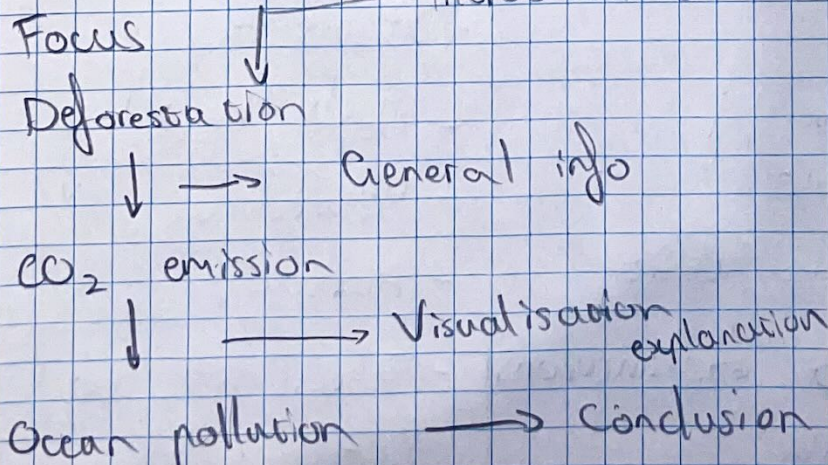 Focus
Deforestation
↓ → General info
CO₂ emission
↓ → Visualisation
explanation
Ocean pollution → Conclusion